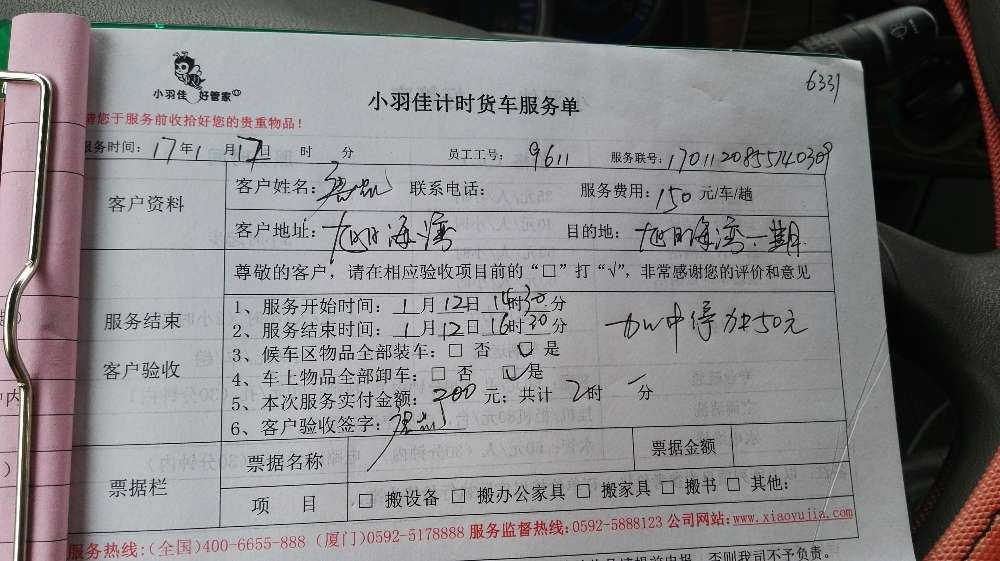 6331
小羽佳 好管家
小羽佳计时货车服务单
请您于服务前收拾好您的贵重物品！
服务时间：17年1月17日 时 分 员工工号：9611 服务联号：1701120855740309
客户资料
客户姓名： 联系电话： 服务费用：150元/车/趟
客户地址：旭日海湾 目的地：旭日海湾一期
尊敬的客户，请在相应验收项目前的“□”打“√”，非常感谢您的评价和意见
服务结束
客户验收
1、服务开始时间：1月12日14时30分
2、服务结束时间：1月12日16时30分
3、候车区物品全部装车：□ 否 ☑ 是
4、车上物品全部卸车：□ 否 ☑ 是
5、本次服务实付金额：200元；共计2时 分
6、客户验收签字：
中停加50元
票据栏
票据名称 票据金额
项 目 □ 搬设备 □ 搬办公家具 □ 搬家具 □ 搬书 □ 其他：
服务热线：(全国)400-6655-888 (厦门)0592-5178888 服务监督热线：0592-5888123 公司网站：www.xiaoyujia.com
否则我司不予负责。